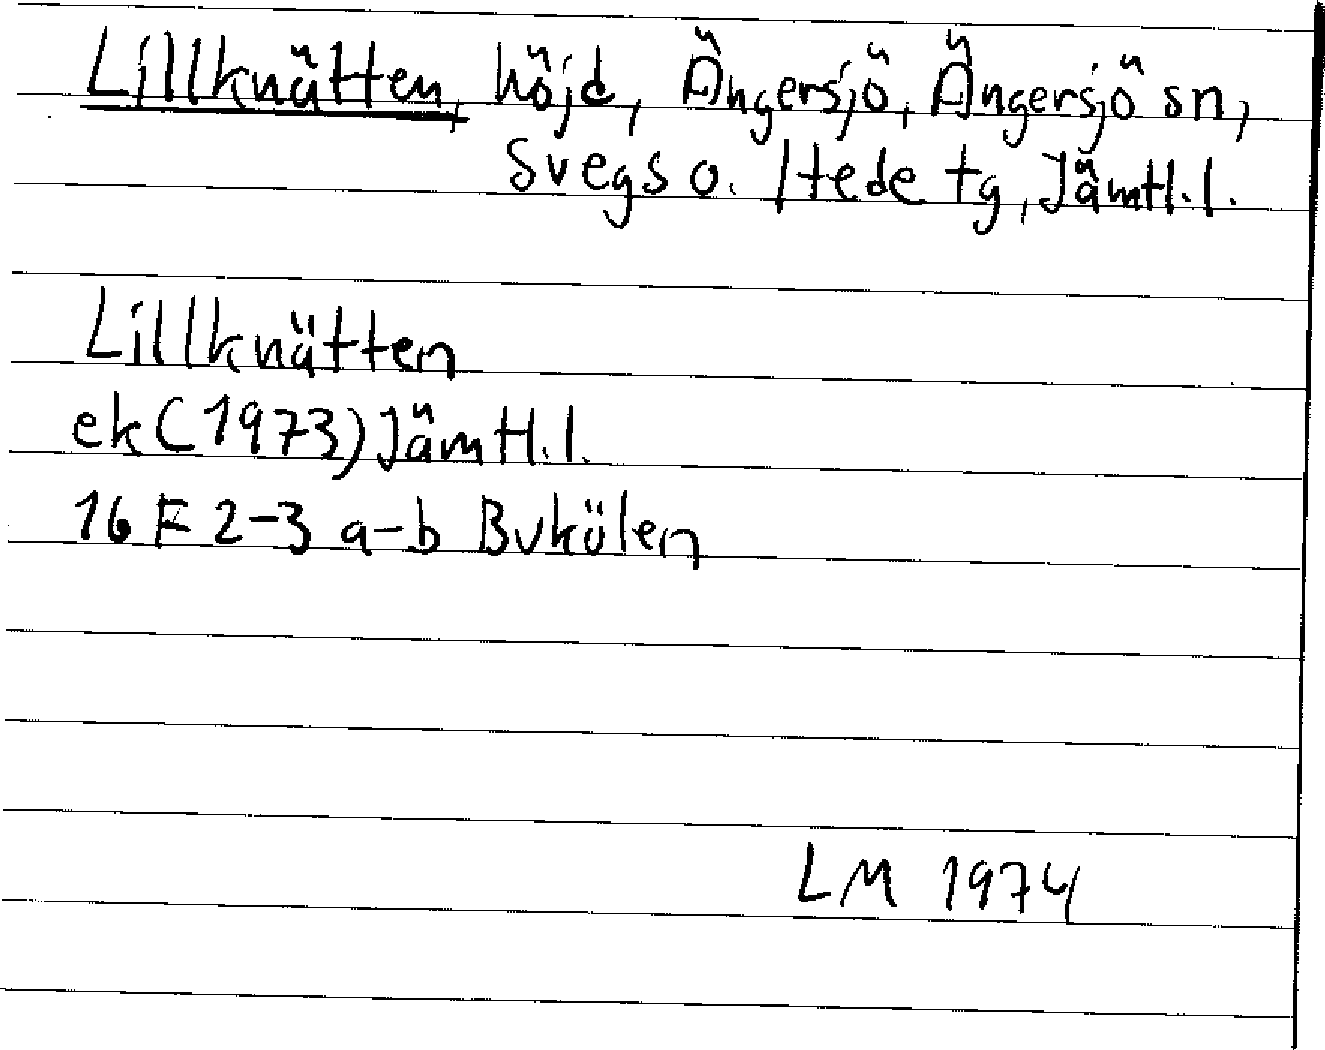 Lillknätten, höjd, Ängersjö, Ängersjö sn,
Svegs o. Hede tg, Jämtl.l.
Lillknätten
ek (1973) Jämtl.l.
16 F 2-3 a-b Bukölen
LM 1974